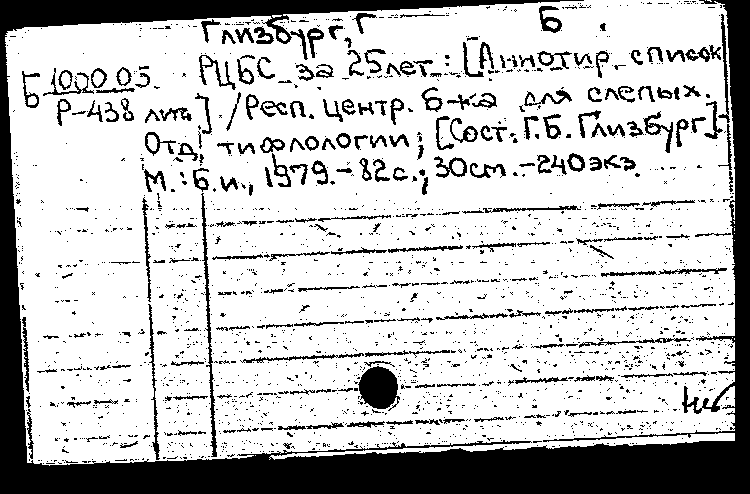 Глизбург, Г Б.
Б 100005 РЦБС за 25 лет: [Аннотир. список
Р-438 лит.] / Респ. центр. б-ка для слепых.
Отд. тифлологии; [Сост.: Г.Б. Глизбург].-
М.: Б.и., 1979.- 82с.; 30см.-240экз.